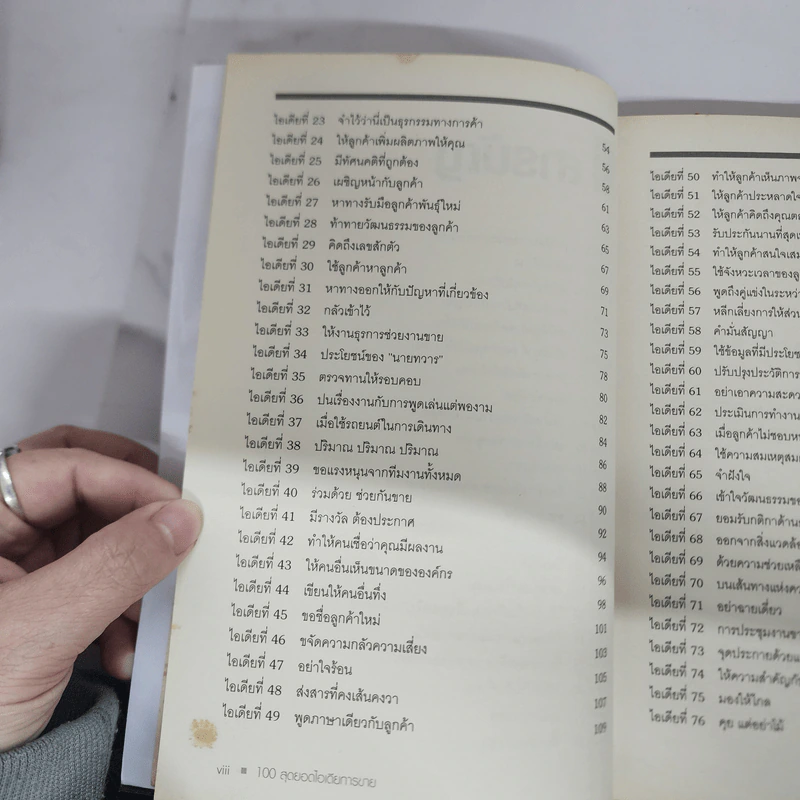 ไอเดียที่ 23 จำไว้ว่านี่เป็นธุรกรรมทางการค้า 54
ไอเดียที่ 24 ให้ลูกค้าเพิ่มผลิตภาพให้คุณ 56
ไอเดียที่ 25 มีทัศนคติที่ถูกต้อง 58
ไอเดียที่ 26 เผชิญหน้ากับลูกค้า 61
ไอเดียที่ 27 หาทางรับมือลูกค้าพันธุ์ใหม่ 63
ไอเดียที่ 28 ท้าทายวัฒนธรรมของลูกค้า 65
ไอเดียที่ 29 คิดถึงเลขสักตัว 67
ไอเดียที่ 30 ใช้ลูกค้าหาลูกค้า 69
ไอเดียที่ 31 หาทางออกให้กับปัญหาที่เกี่ยวข้อง 71
ไอเดียที่ 32 กลัวเข้าไว้ 73
ไอเดียที่ 33 ให้งานธุรการช่วยงานขาย 75
ไอเดียที่ 34 ประโยชน์ของ "นายทวาร" 78
ไอเดียที่ 35 ตรวจทานให้รอบคอบ 80
ไอเดียที่ 36 ปนเรื่องงานกับการพูดเล่นแต่พองาม 82
ไอเดียที่ 37 เมื่อใช้รถยนต์ในการเดินทาง 84
ไอเดียที่ 38 ปริมาณ ปริมาณ ปริมาณ 86
ไอเดียที่ 39 ขอแรงหนุนจากทีมงานทั้งหมด 88
ไอเดียที่ 40 ร่วมด้วย ช่วยกันขาย 90
ไอเดียที่ 41 มีรางวัล ต้องประกาศ 92
ไอเดียที่ 42 ทำให้คนเชื่อว่าคุณมีผลงาน 94
ไอเดียที่ 43 ให้คนอื่นเห็นขนาดขององค์กร 96
ไอเดียที่ 44 เขียนให้คนอื่นทึ่ง 98
ไอเดียที่ 45 ขอชื่อลูกค้าใหม่ 101
ไอเดียที่ 46 ขจัดความกลัวความเสี่ยง 103
ไอเดียที่ 47 อย่าใจร้อน 105
ไอเดียที่ 48 ส่งสารที่คงเส้นคงวา 107
ไอเดียที่ 49 พูดภาษาเดียวกับลูกค้า 109
viii ■ 100 สุดยอดไอเดียการขาย
ไอเดียที่ 50 ทำให้ลูกค้าเห็นภาพ
ไอเดียที่ 51 ให้ลูกค้าประหลาดใจ
ไอเดียที่ 52 ให้ลูกค้าคิดถึงคุณ
ไอเดียที่ 53 รับประกันนานที่สุด
ไอเดียที่ 54 ทำให้ลูกค้าสนใจ
ไอเดียที่ 55 ใช้จังหวะเวลาของ
ไอเดียที่ 56 พูดถึงคู่แข่งใน
ไอเดียที่ 57 หลีกเลี่ยงการให้ส่วน
ไอเดียที่ 58 คำมั่นสัญญา
ไอเดียที่ 59 ใช้ข้อมูลที่มี
ไอเดียที่ 60 ปรับปรุงประวัติการ
ไอเดียที่ 61 อย่าเอาความสะดว
ไอเดียที่ 62 ประเมินการทำงาน
ไอเดียที่ 63 เมื่อลูกค้าไม่ชอบ
ไอเดียที่ 64 ใช้ความสมเหตุสม
ไอเดียที่ 65 จำฝังใจ
ไอเดียที่ 66 เข้าใจวัฒนธรรมขอ
ไอเดียที่ 67 ยอมรับกติกาด้าน
ไอเดียที่ 68 ออกจากสิ่งแวดล้อ
ไอเดียที่ 69 ด้วยความช่วยเหลื
ไอเดียที่ 70 บนเส้นทางแห่ง
ไอเดียที่ 71 อย่าฉายเดี่ยว
ไอเดียที่ 72 การประชุมงาน
ไอเดียที่ 73 จุดประกายด้วย
ไอเดียที่ 74 ให้ความสำคัญกั
ไอเดียที่ 75 มองให้ไกล
ไอเดียที่ 76 คุย แต่อย่าโม้